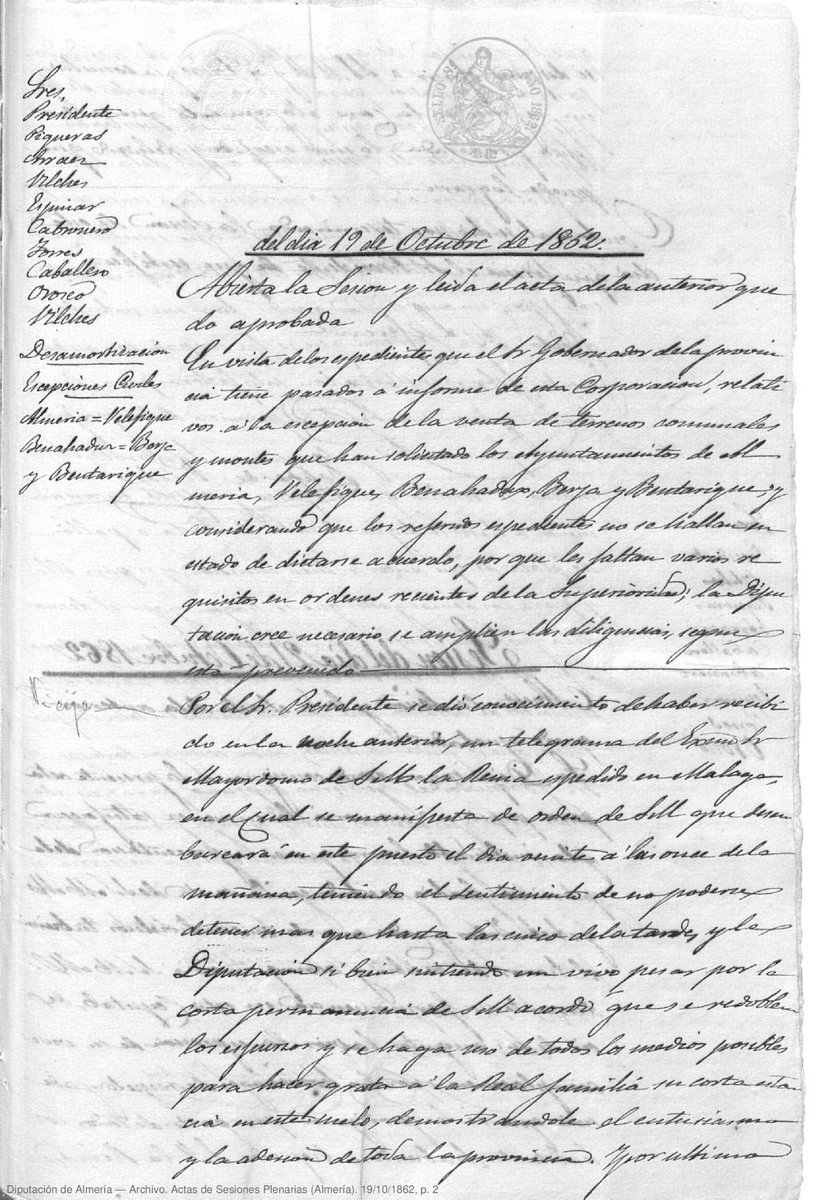 SELLO 9º AÑO 1862
Sres,
Presidente
Piqueras
Arraez
Vilches
Espinar
Cabronero
Torres
Caballero
Orozco
Vilches
Desamortizacion
Escepciones Civiles
Almeria = Velefique
Benahadux = Berja
y Bentarique
del dia 19 de Octubre de 1862.
Abierta la Sesion y leida el acta de la anterior que
do aprobada
En vista de los espedientes que el Sr Gobernador de la provin
cia tiene pasados á informe de esta Corporacion, relati
vos á la escepcion de la venta de terrenos comunales
y montes que han solicitado los Ayuntamientos de Al
meria, Velefique, Benahadux, Berja y Bentarique, y
considerando que los referidos espedientes no se hallan en
estado de dictarse acuerdo, por que les faltan varios re
quisitos en ordenes recientes de la Superioridad; la Dipu
tacion cree necesario se amplien las diligencias, segun
esta prevenido
Por el Sr. Presidente se dió conocimiento de haber recibi
do en la noche anterior, un telegrama del Exmo Sr
Mayordomo de SSMM la Reina espedido en Malaga,
en el Cual se manifiesta de orden de SM que desem
barcará en este puerto el dia veinte á las once de la
mañana, teniendo el sentimiento de no poderse
detener mas que hasta las cinco de la tarde, y la
Diputacion si bien sintiendo un vivo pesar por la
corta permanencia de SM acordó que se redoblen
los esfuerzos y se haga uso de todos los medios posibles
para hacer grata á la Real familia su corta estan
cia en este suelo, demostrandole el entusiasmo
y la adesion de toda la provincia. Y por ultimo
Diputación de Almería — Archivo. Actas de Sesiones Plenarias (Almería). 19/10/1862, p. 2